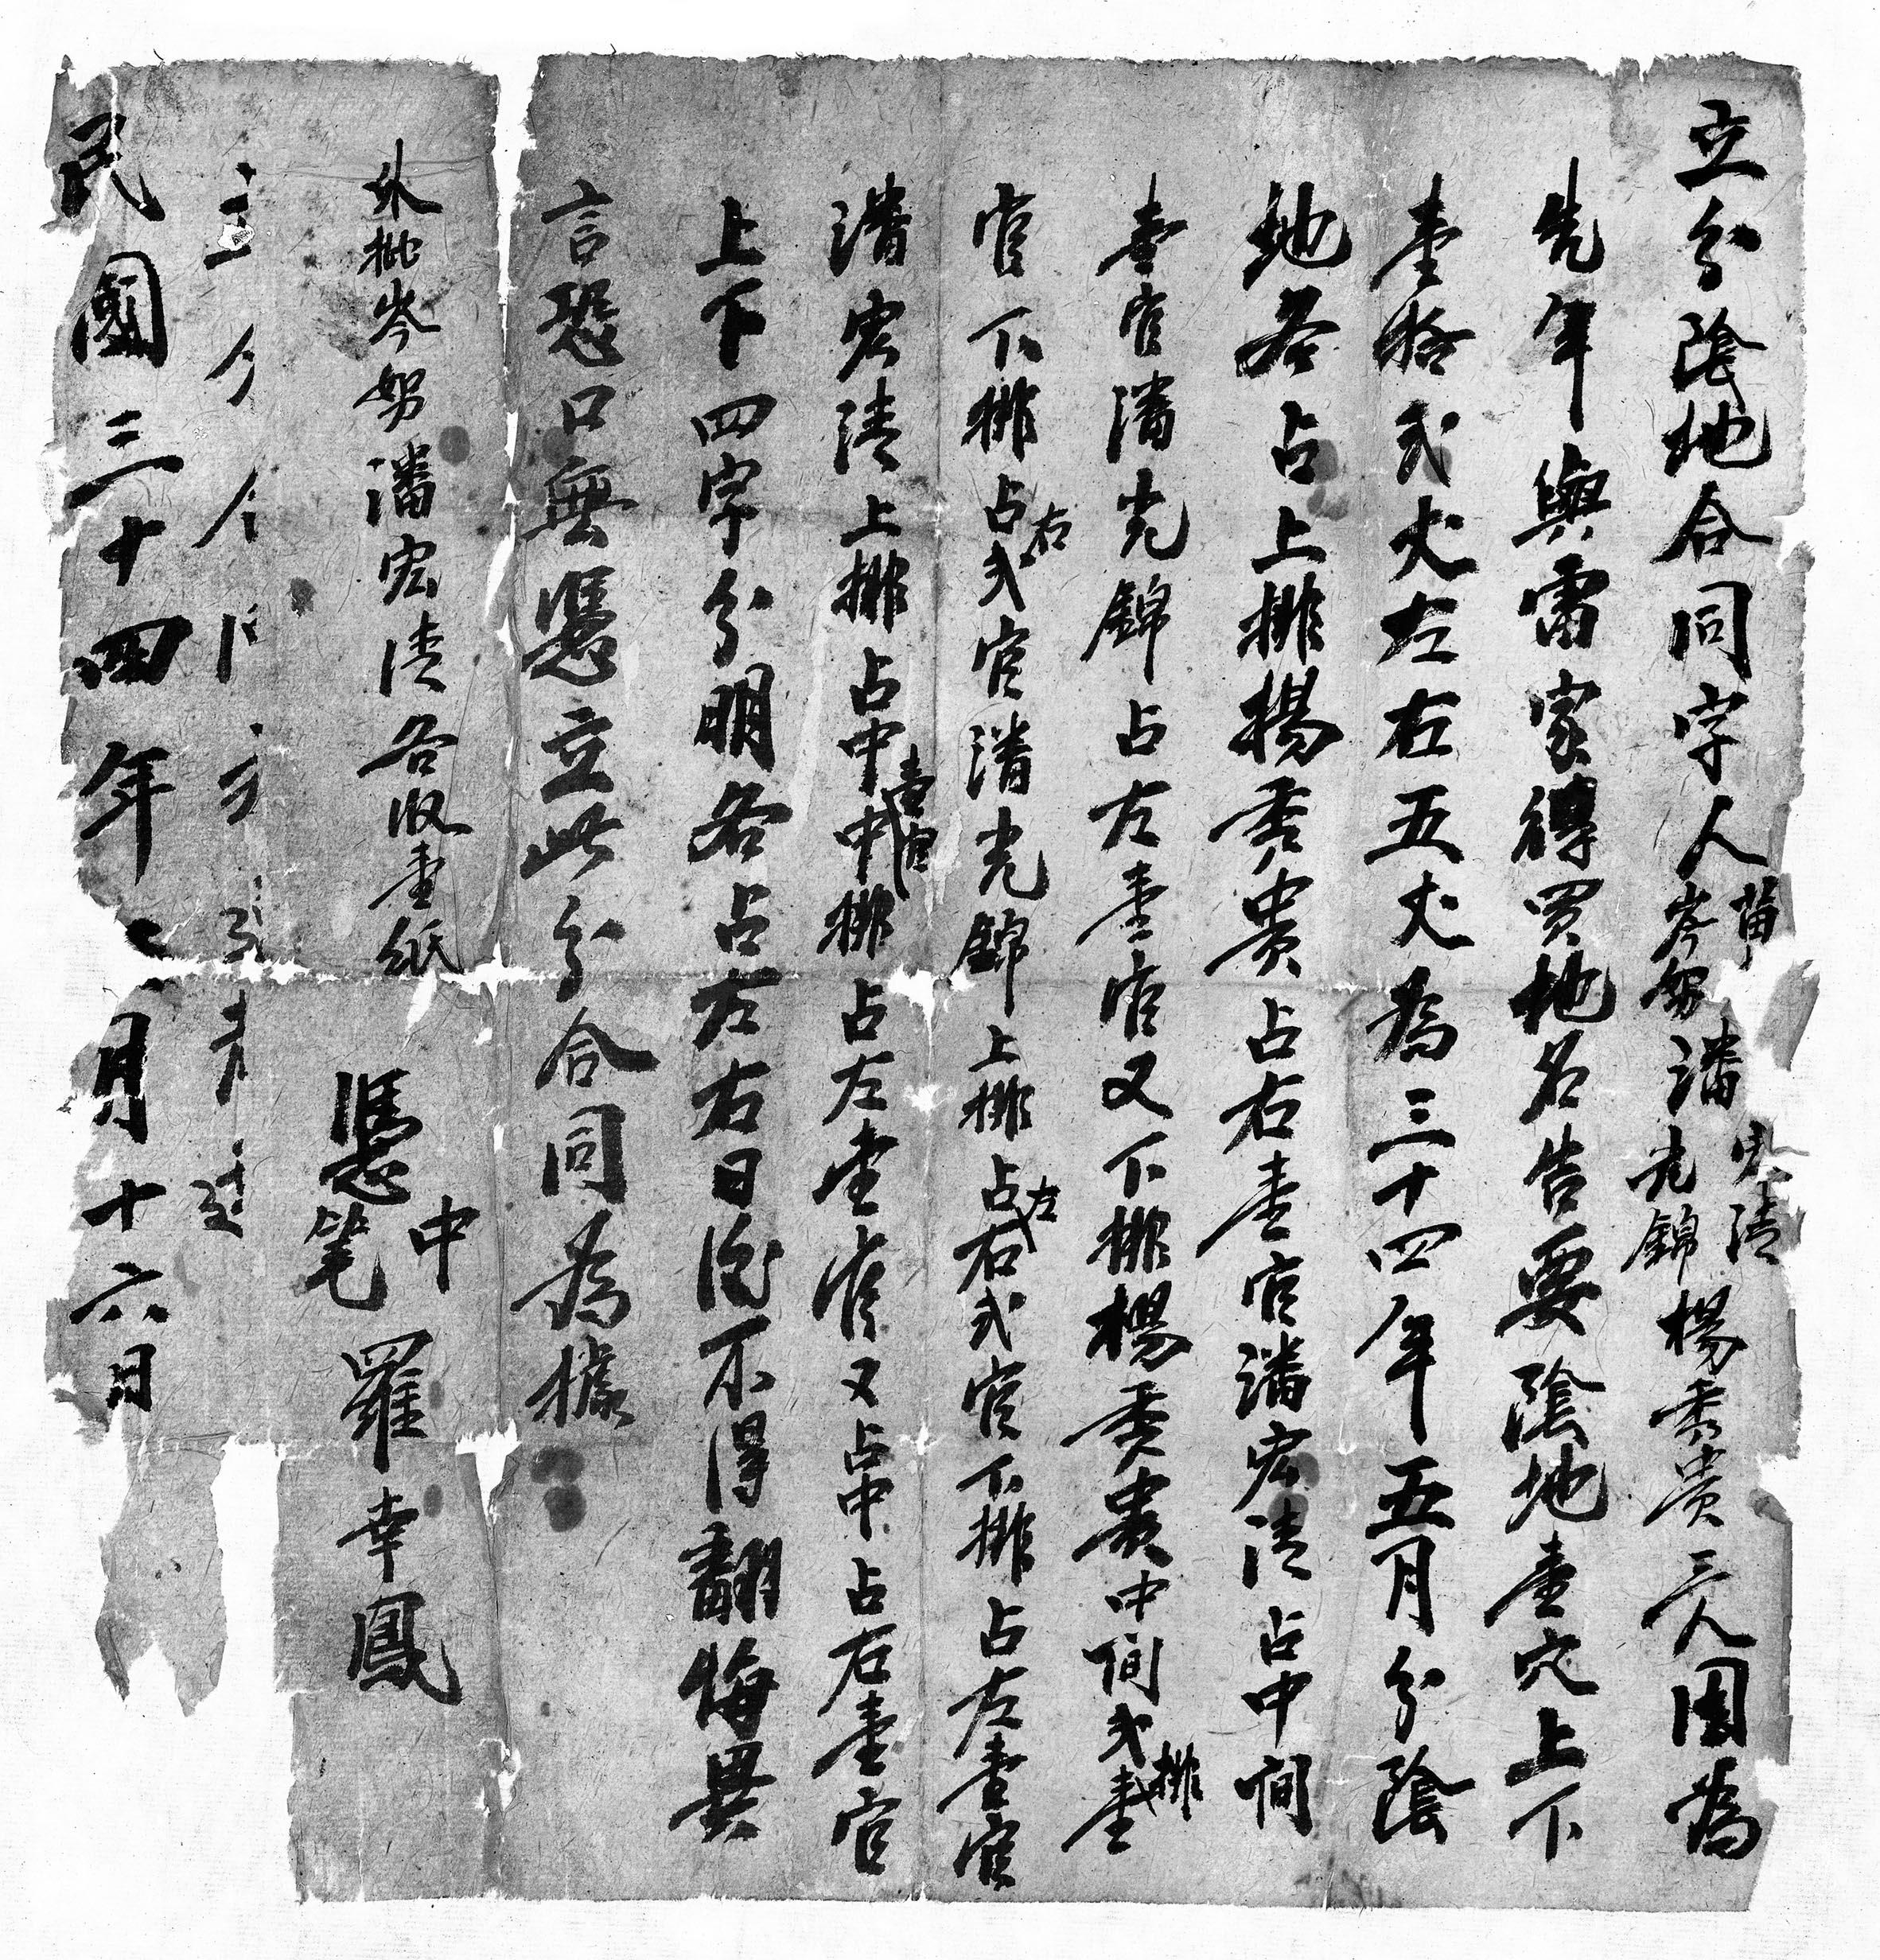 立分陰地合同字人苗岑努潘宏清光錦楊秀貴三人因為
先年與雷家得買地名告要陰地壹穴上下
壹拾弍丈左右五丈為三十四年五月分陰
地各占上排楊秀貴占右壹官潘宏清占中間
壹官潘光錦占左壹官又下排楊秀貴中間弍排壹
官下排占右弍官潘光錦上排占左右弍官下排占左壹官
潘宏清上排占中壹官中排占左壹官又占中占右壹官
上下四字分明各占左右日後不得翻悔異
言恐口無憑立此分合同為據
外批岑努潘宏清各收壹紙
憑中
筆羅幸鳳
民國三十四年月十六日